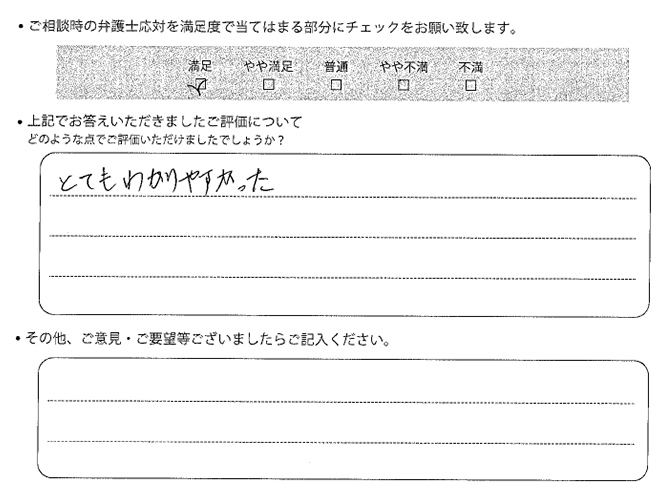 ・ご相談時の弁護士応対を満足度で当てはまる部分にチェックをお願い致します。
満足 やや満足 普通 やや不満 不満
☑ □ □ □ □
・上記でお答えいただきましたご評価について
どのような点でご評価いただけましたでしょうか？
とてもわかりやすかった
・その他、ご意見・ご要望等ございましたらご記入ください。